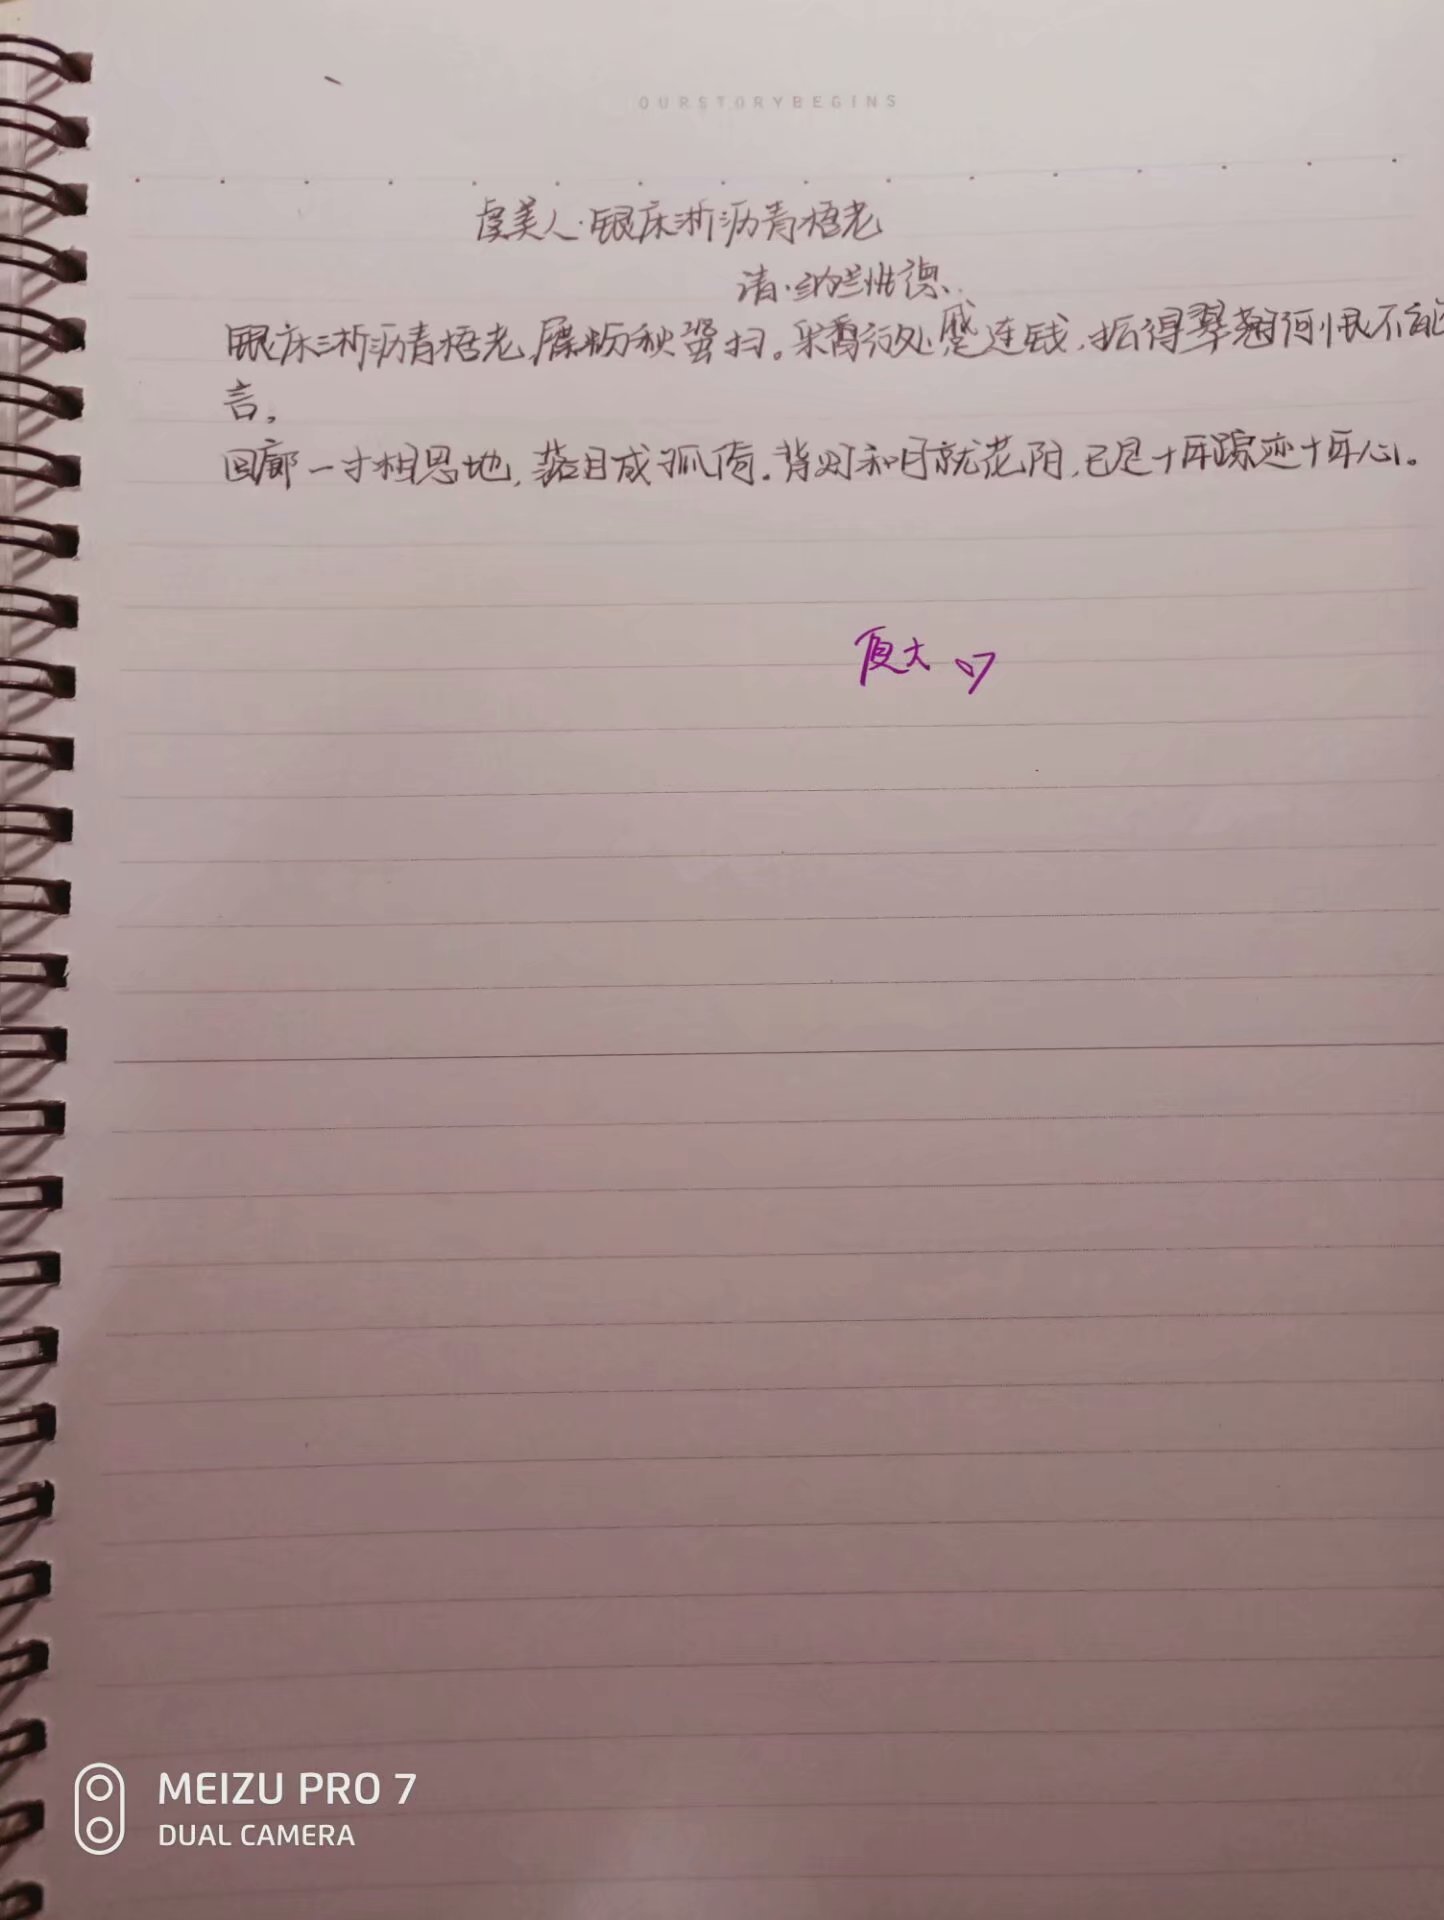 OURSTORYBEGINS
虞美人·银床淅沥青梧老
清·纳兰性德
银床淅沥青梧老,屧粉秋蛩扫。采香行处蹙连钱,拓得翠翘何恨不能
言。
回廊一寸相思地,落月成孤倚。背灯和月就花阴,已是十年踪迹十年心。
厦大
MEIZU PRO 7
DUAL CAMERA